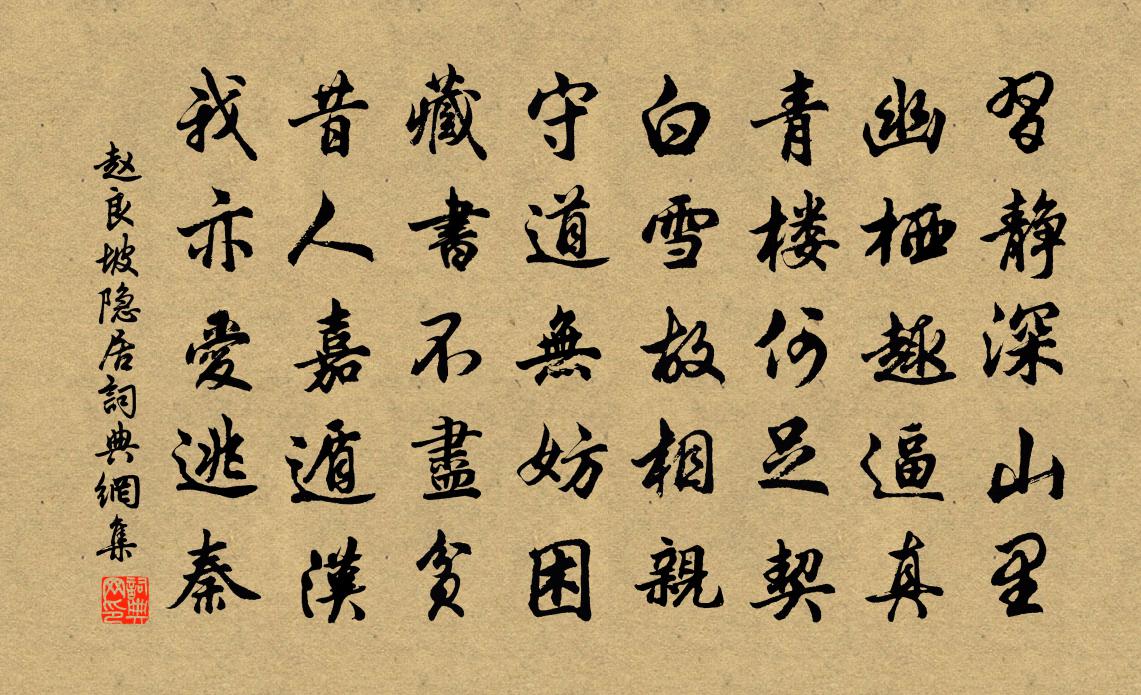 習静深山里
幽栖趣逼真
青楼何足契
白雪故相親
守道無妨困
藏書不盡貧
昔人嘉遁漢
我亦愛逃秦
赵良坡隐居詞典網集
詞典
网印